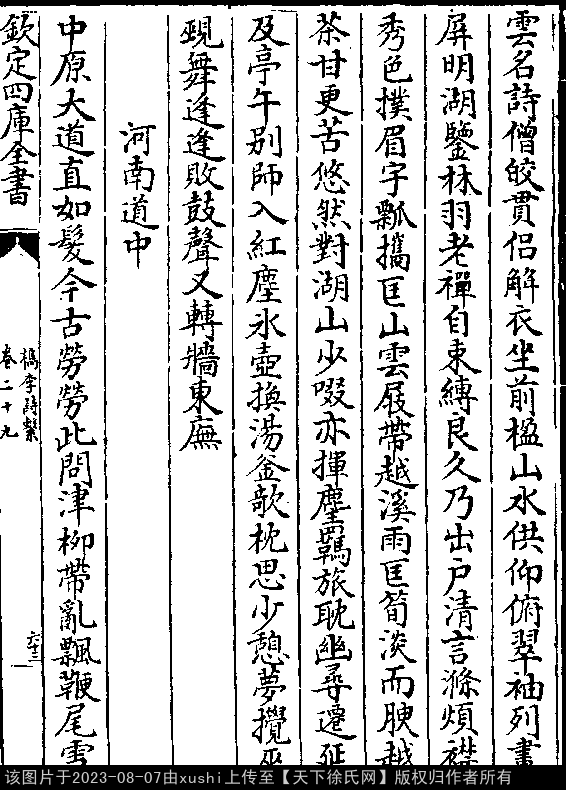 雲名詩僧皎貫侣解衣坐前楹山水供仰俯翠袖列畫
屏明湖鑒林羽老禪自束縛良久乃出户清言滌煩襟
秀色撲眉宇瓢攜匡山雲屐帶越溪雨匡筍淡而腴越
茶甘更苦悠然對湖山少啜亦揮麈羈旅耽幽尋遷延
及亭午别師入紅塵氷壺換湯釜欹枕思少憩夢攪巫
覡舞逢逢敗鼓聲又轉牆東廡
河南道中
中原大道直如髮今古勞勞此問津柳帶亂飄鞭尾雪
欽定四庫全書
檇李詩繫
卷二十九
六十三
该图片于2023-08-07由xushi上传至【天下徐氏网】版权归作者所有